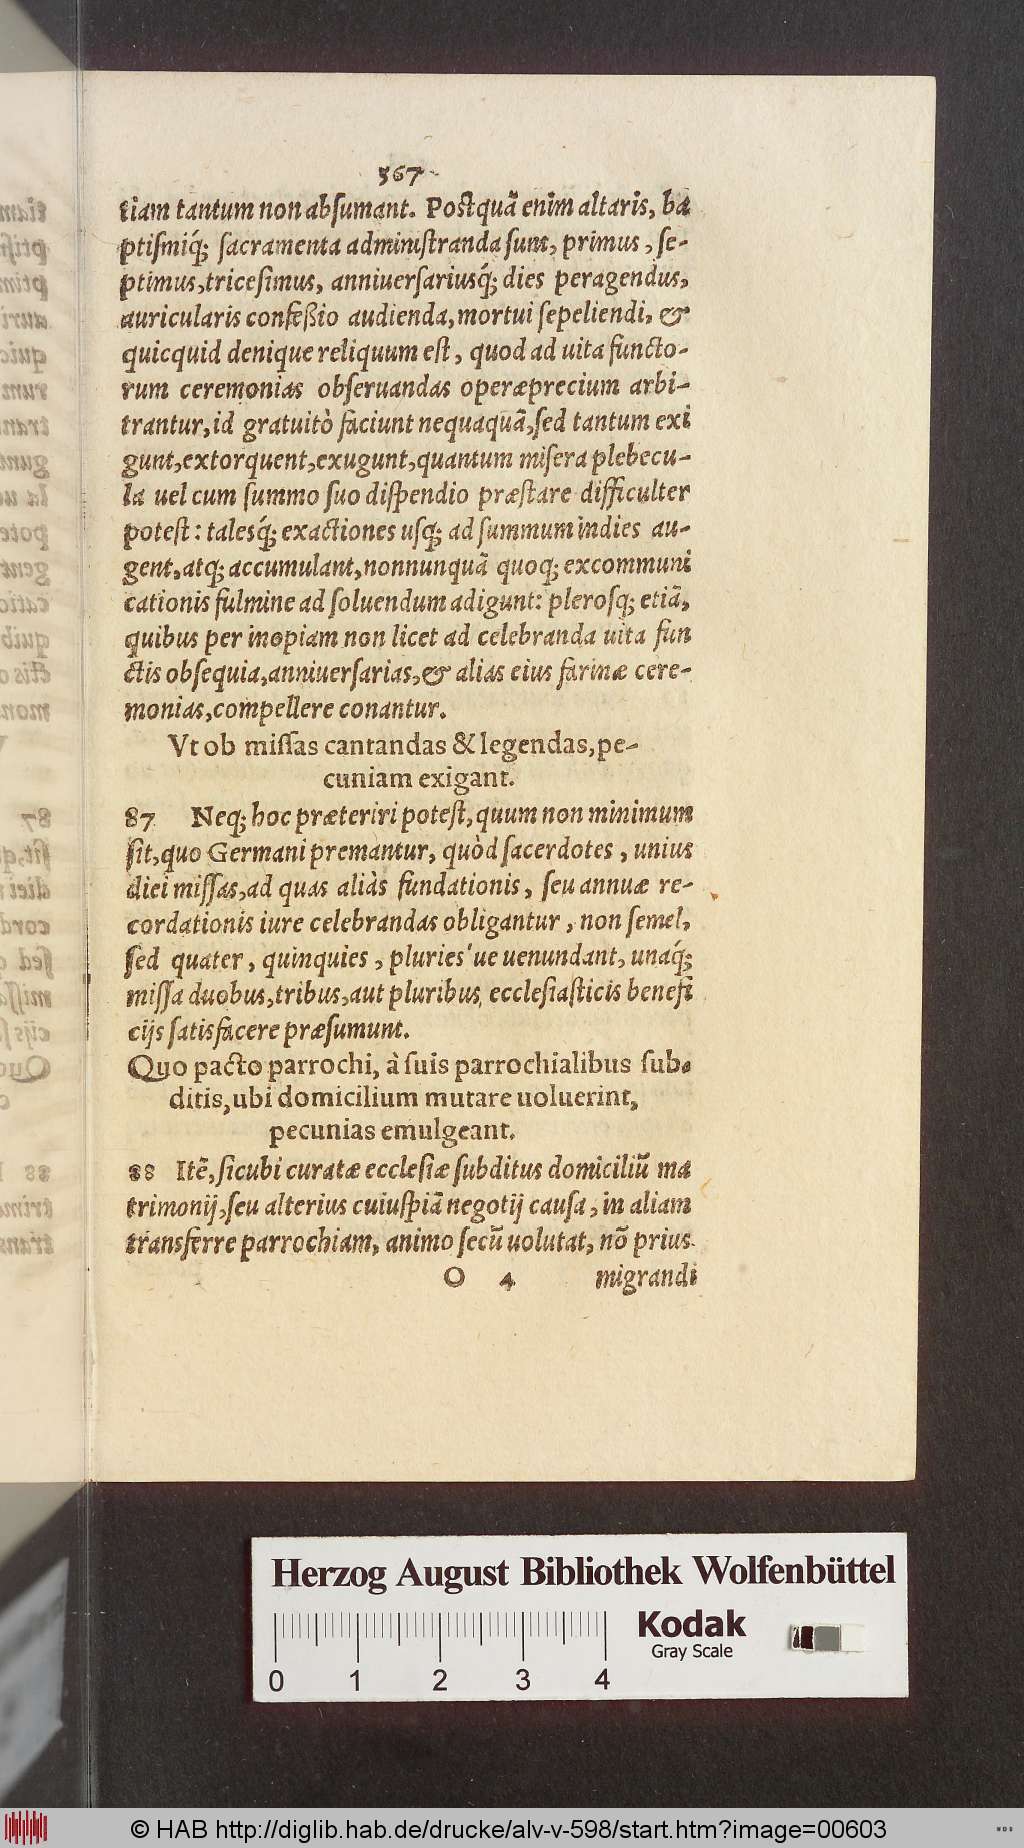 567
tiam tantum non abſumant. Poſtquã enim altaris, ba
ptiſmiq́; ſacramenta adminiſtranda ſunt, primus, ſe-
ptimus, triceſimus, anniuerſariusq́; dies peragendus,
auricularis confeßio audienda, mortui ſepeliendi, &
quicquid denique reliquum eſt, quod ad uita functo-
rum ceremonias obſeruandas operæprecium arbi-
trantur, id gratuitò faciunt nequaquã, ſed tantum exi
gunt, extorquent, exugunt, quantum miſera plebecu-
la uel cum ſummo ſuo diſpendio præſtare difficulter
poteſt: talesq́; exactiones uſq; ad ſummum indies au-
gent, atq; accumulant, nonnunquã quoq; excommuni
cationis fulmine ad ſoluendum adigunt: pleroſq; etiã,
quibus per inopiam non licet ad celebranda uita fun
ctis obſequia, anniuerſarias, & alias eius farinæ cere-
monias, compellere conantur.
Vt ob miſſas cantandas & legendas, pe-
cuniam exigant.
87 Neq; hoc præteriri poteſt, quum non minimum
ſit, quo Germani premantur, quòd ſacerdotes, unius
diei miſſas, ad quas aliàs fundationis, ſeu annuæ re-
cordationis iure celebrandas obligantur, non ſemel,
ſed quater, quinquies, pluries'ue uenundant, unaq́;
miſſa duobus, tribus, aut pluribus eccleſiaſticis benefi
cijs ſatisfacere præſumunt.
Quo pacto parrochi, à ſuis parrochialibus ſub-
ditis, ubi domicilium mutare uoluerint,
pecunias emulgeant.
88 Itẽ, ſicubi curatæ eccleſiæ ſubditus domiciliũ ma
trimonij, ſeu alterius cuiuſpiã negotij cauſa, in aliam
transferre parrochiam, animo ſecũ uolutat, nõ prius
O 4 migrandi
Herzog August Bibliothek Wolfenbüttel
Kodak
Gray Scale
0 1 2 3 4
© HAB http://diglib.hab.de/drucke/alv-v-598/start.htm?image=00603